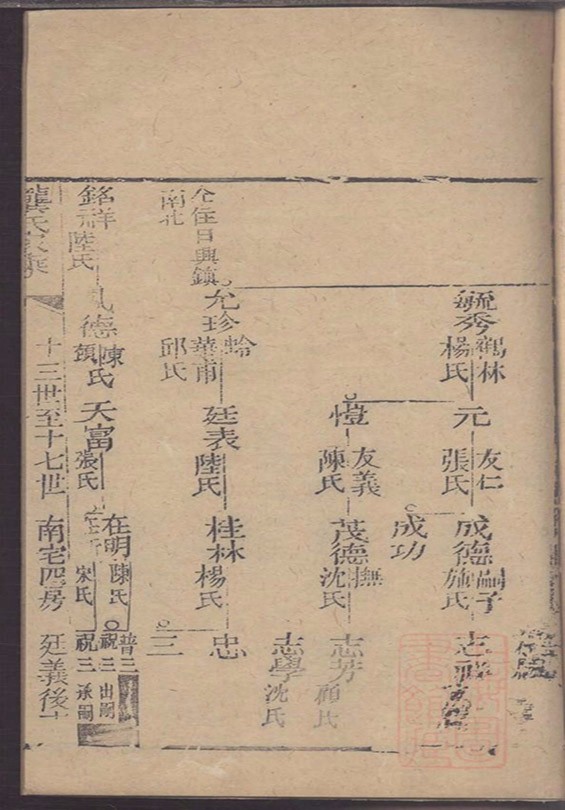 毓秀
鶴林
楊氏
元
友仁
張氏
成德
嗣子
施氏
愷
友義
陳氏
成功
茂德
撫
沈氏
志芳
顧氏
志學
沈氏
允珍
蛉
華甫
邱氏
廷表
陸氏
桂林
楊氏
忠
三
仝住日興鎮
南北
銘祥
陸氏
德
陳氏
天富
張氏
在明
陳氏
宋氏
普三
祝三
出嗣
祝三
承嗣
龔氏家乘
十三世至十七世
南宅四房
廷義後